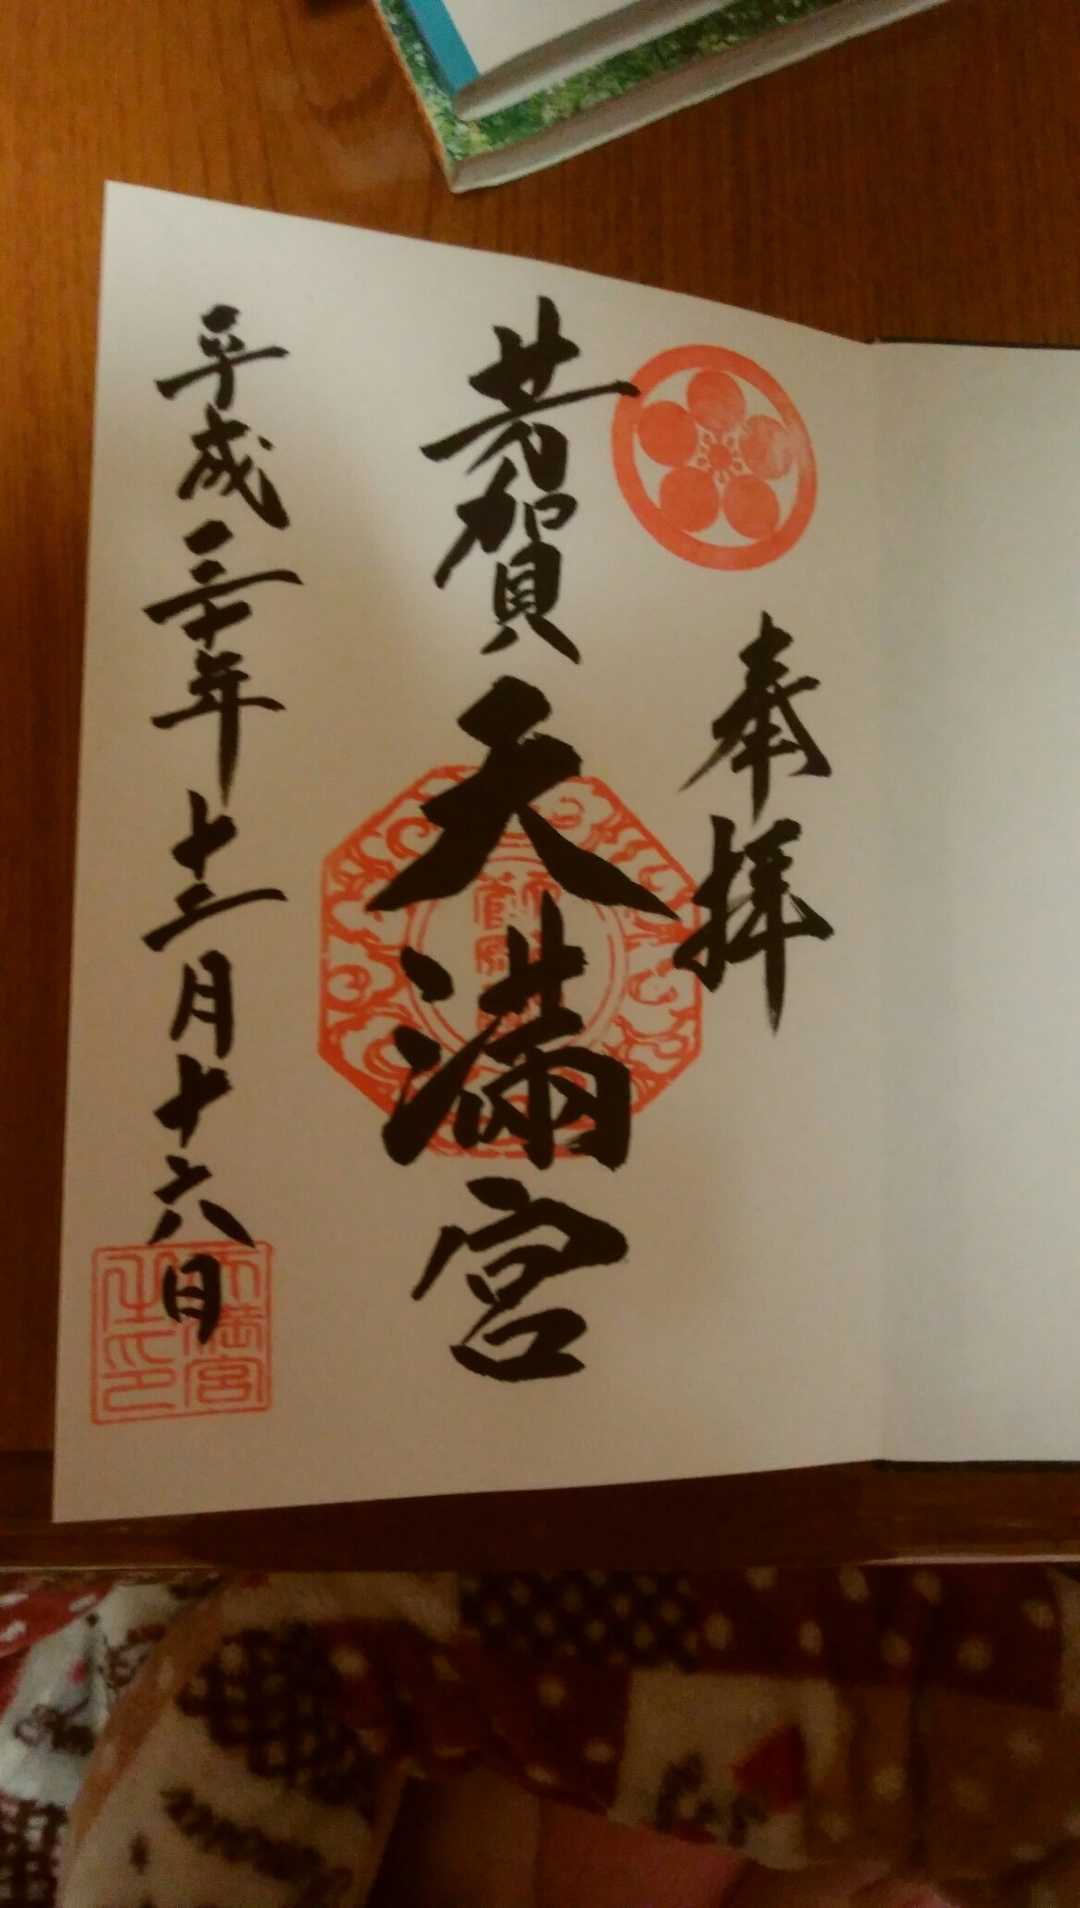 奉拝
芳賀天満宮
平成三十年十二月十六日
天満宮
之印